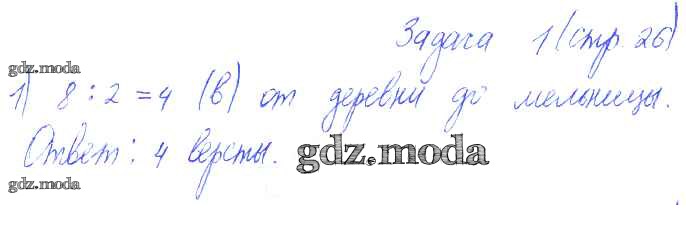 Задача 1 (стр. 26)
gdz.moda
1) 8 : 2 = 4 (в) от деревни до мельницы.
Ответ: 4 версты. gdz.moda
gdz.moda